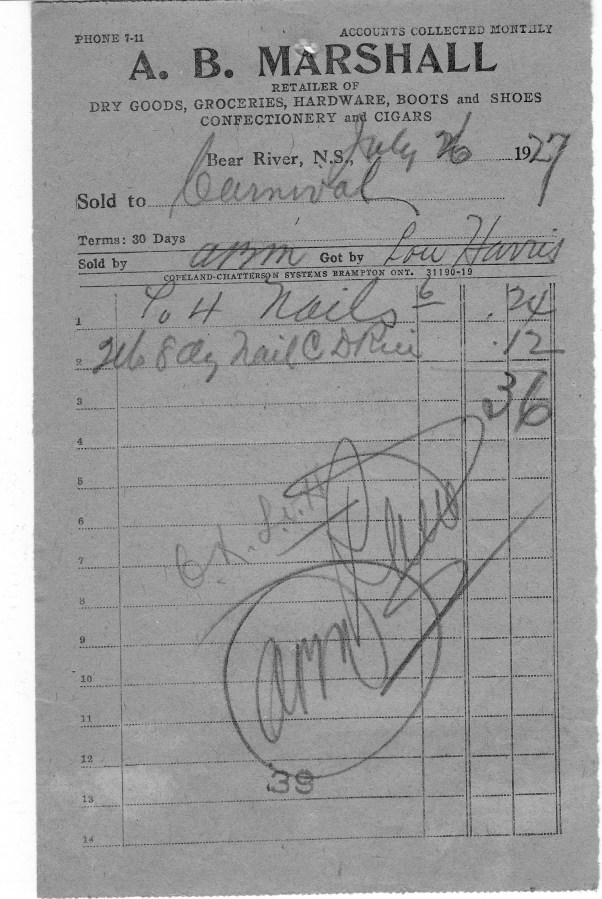 PHONE 7-11 ACCOUNTS COLLECTED MONTHLY
A. B. MARSHALL
RETAILER OF
DRY GOODS, GROCERIES, HARDWARE, BOOTS and SHOES
CONFECTIONERY and CIGARS
Bear River, N.S., July 26 1927
Sold to Carnival
Terms: 30 Days
Sold by ABM Got by Lou Harris
COPELAND-CHATTERSON SYSTEMS BRAMPTON ONT. 31190-19
1 To 4 Nails 6 .24
2 8 Nail .12
3 36
4
5
6 O.K. L.V.H
7
8
9 ABM
10
11
12
39
13
14